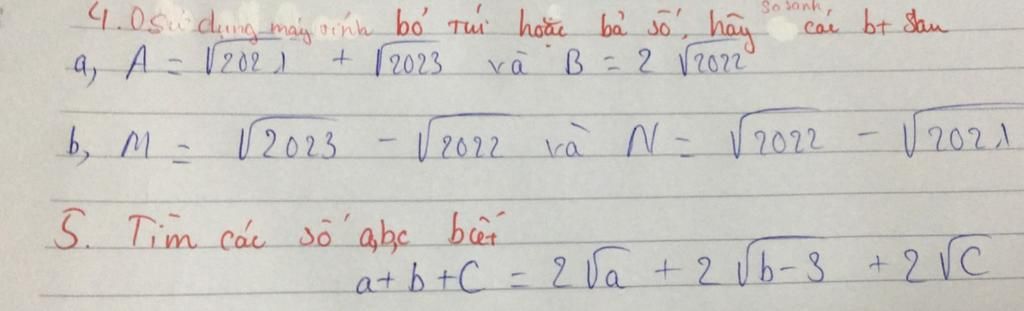 4. 0 sử dụng máy tính bỏ túi hoặc bả số, hãy so sánh các bt sau
a, A = √2021 + √2023 và B = 2 √2022
b, M = √2023 - √2022 và N = √2022 - √2021
5. Tìm các số a,b,c biết
a + b + C = 2√a + 2 √b-3 + 2 √C